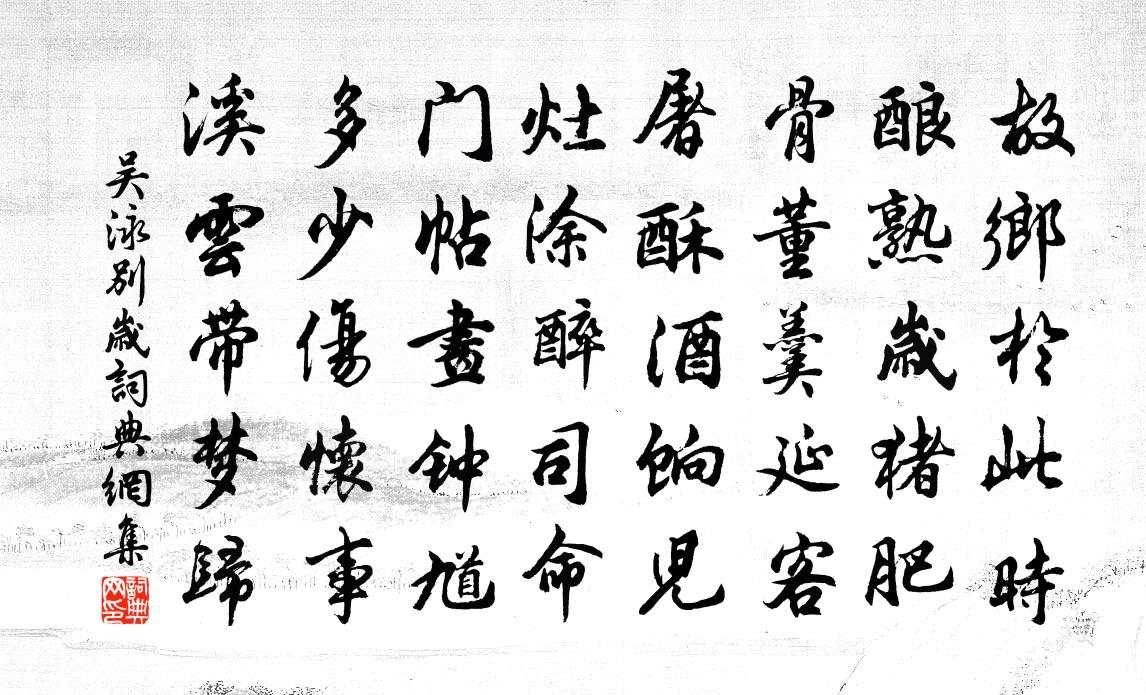 故鄉於此時
酿熟歲猪肥
骨董羹延客
屠酥酒饷兒
灶涂醉司命
门帖畫钟馗
多少傷懷事
溪雲带梦歸
吴泳别歲詞典網集
詞典网印